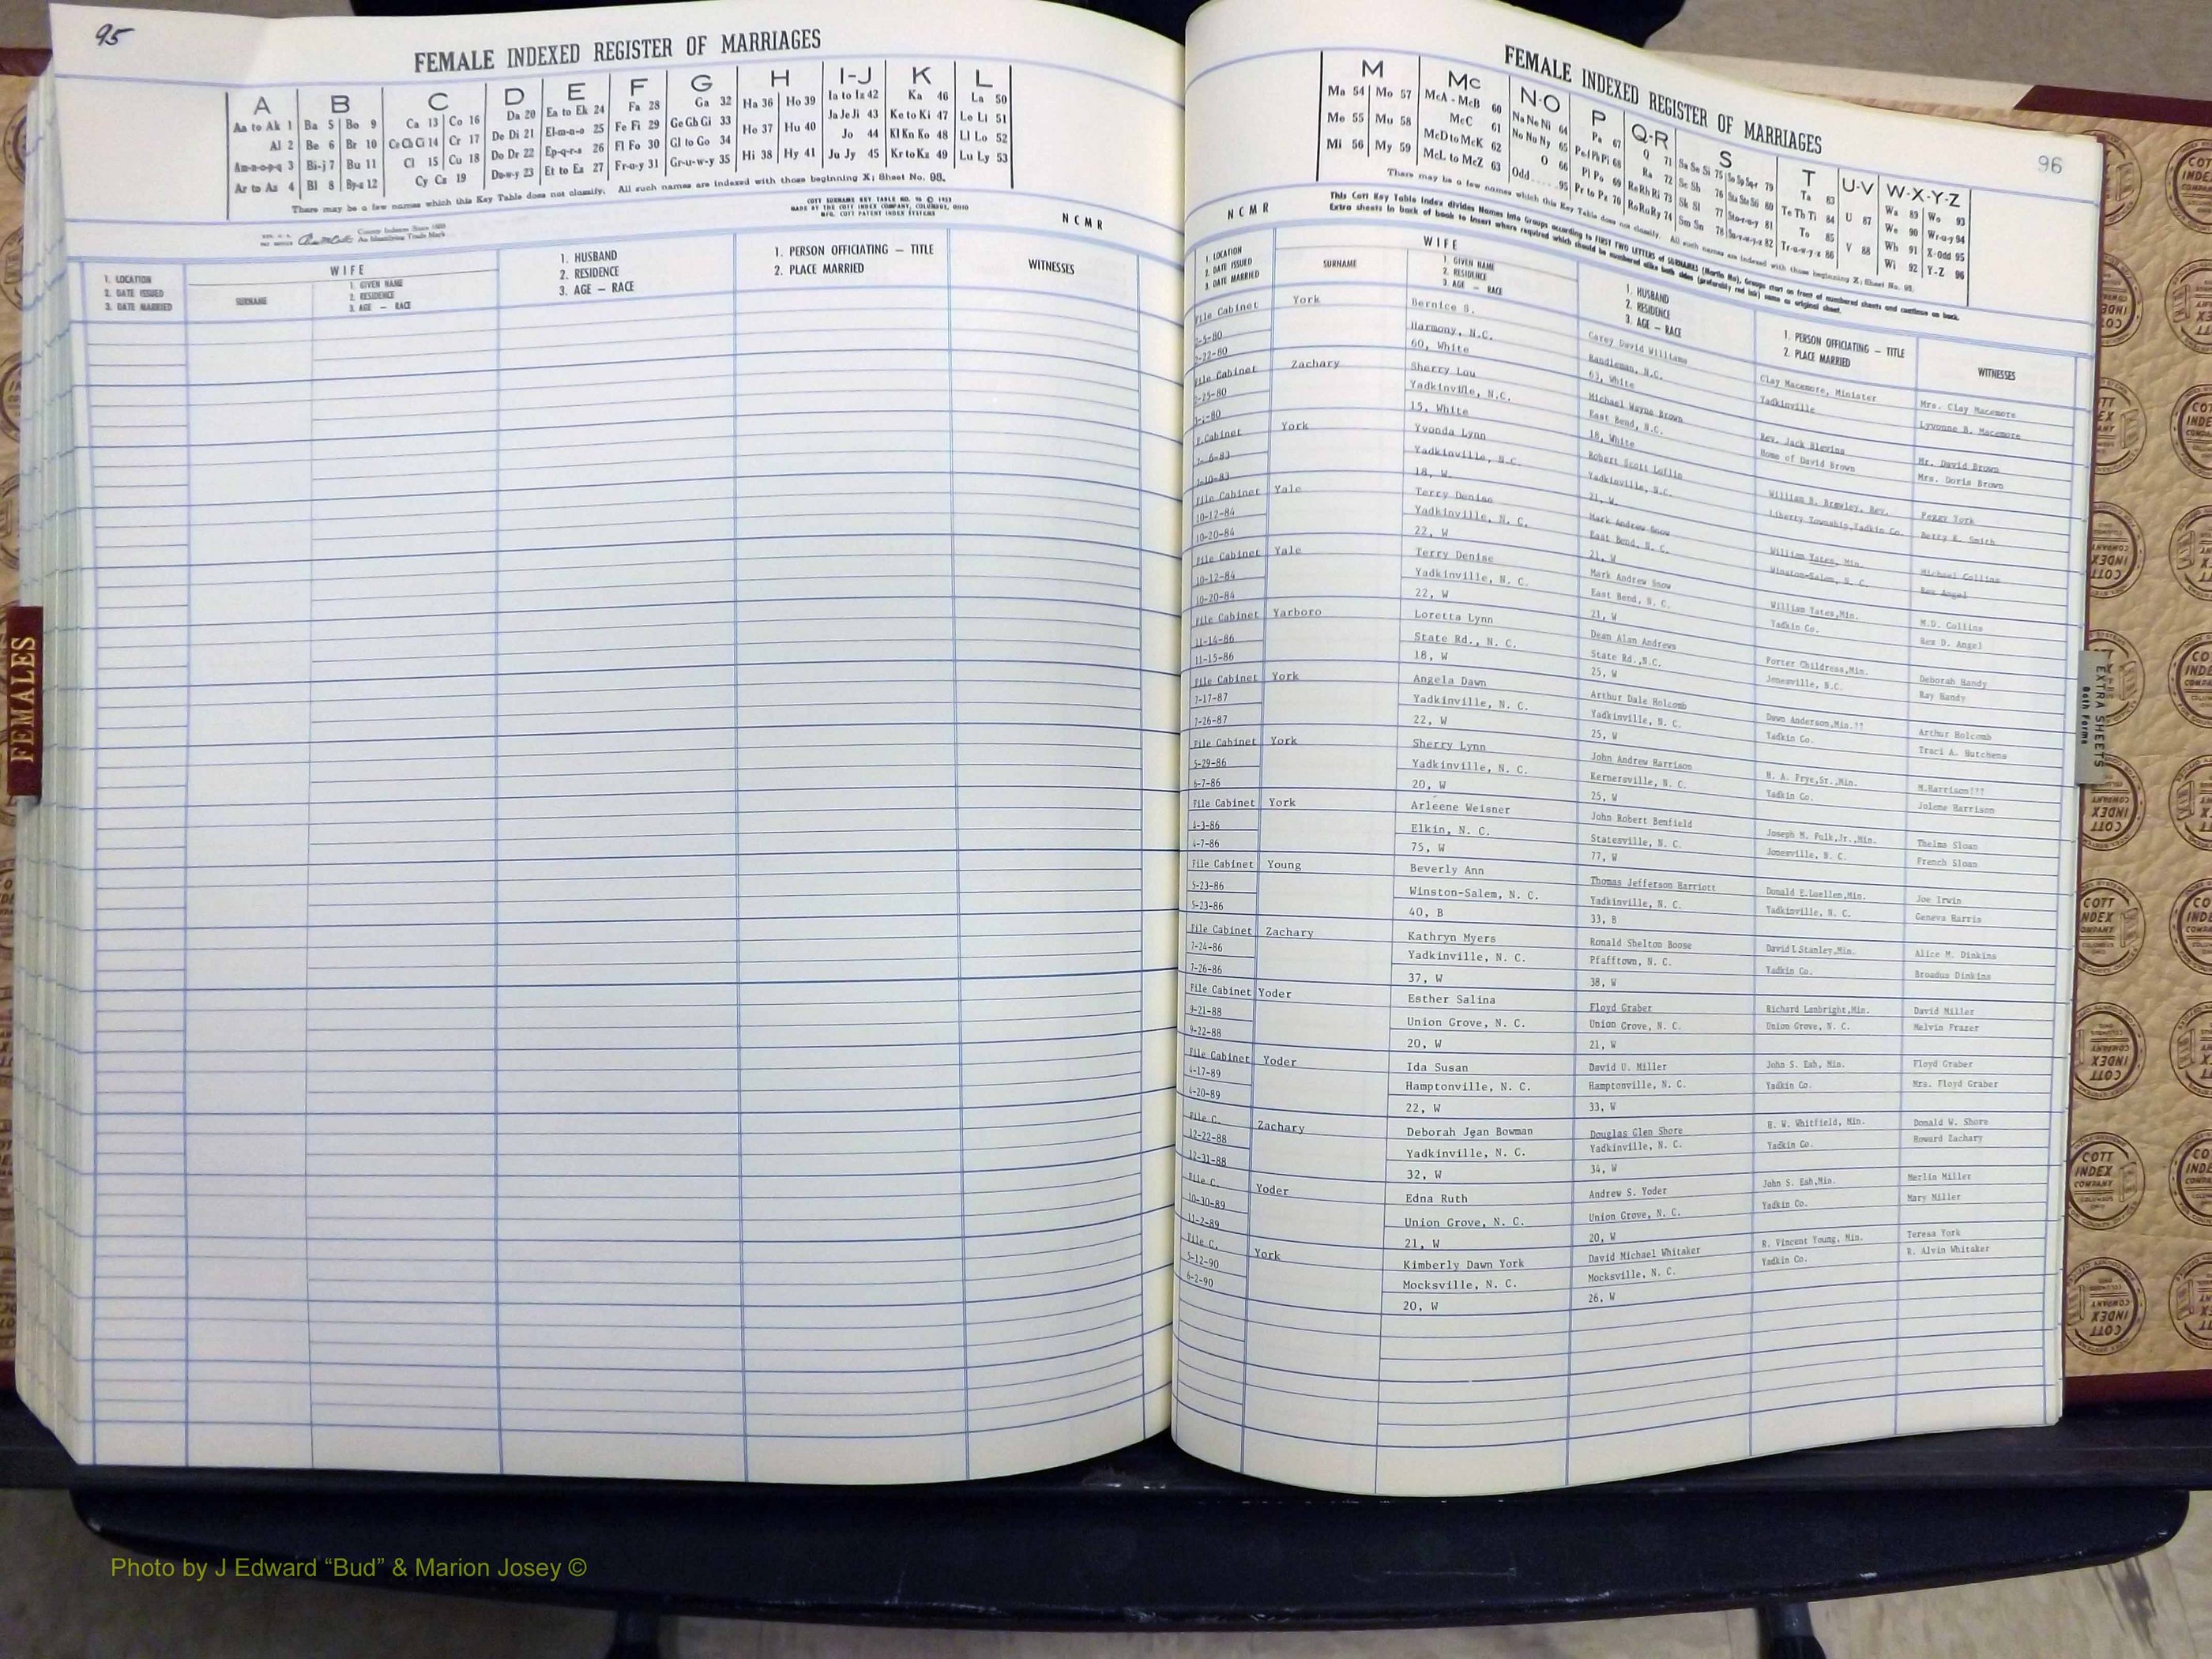 95
FEMALE INDEXED REGISTER OF MARRIAGES
A B C D E F G H I-J K L
Aa to Ak 1 Ba 5 Bo 9 Ca 13 Co 16 Da 20 Ea to Ek 24 Fa 28 Ga 32 Ha 36 Ho 39 Ia to Iz 42 Ka 46 La 50
Al 2 Be 6 Br 10 Ce Ch Ci 14 Cr 17 De Di 21 El-m-n-o 25 Fe Fi 29 Ge Gh Gi 33 He 37 Hu 40 Ja Je Ji 43 Ke to Ki 47 Le Li 51
Am-n-o-p-q 3 Bi-j 7 Bu 11 Cl 15 Cu 18 Do Dr 22 Ep-q-r-s 26 Fl Fo 30 Gl to Go 34 Hi 38 Hy 41 Jo 44 Kl Kn Ko 48 Ll Lo 52
Ar to As 4 Bl 8 By-z 12 Cy Cz 19 Du-w-y 23 Et to Ez 27 Fr-u-y 31 Gr-u-w-y 35 Ju Jy 45 Kr to Kz 49 Lu Ly 53
There may be a few names which this Key Table does not classify. All such names are indexed with those beginning X; Sheet No. 98.
COTT SURNAME KEY TABLE NO.
MADE BY THE COTT INDEX COMPANY, COLUMBUS, OHIO
MFG. COTT PATENT INDEX SYSTEMS
NCMR
1. LOCATION
2. DATE ISSUED
3. DATE MARRIED
WIFE
SURNAME
1. GIVEN NAME
2. RESIDENCE
3. AGE — RACE
1. HUSBAND
2. RESIDENCE
3. AGE — RACE
1. PERSON OFFICIATING — TITLE
2. PLACE MARRIED
WITNESSES
FEMALES
FEMALE INDEXED REGISTER OF MARRIAGES
96
M Mc N-O P Q-R S T U-V W-X-Y-Z
Ma 54 Mo 57 McA - McB 60 Na Ne Ni 64 Pa 67 Q 71 Ta 83 U 87 Wa 89 Wo 93
Me 55 Mu 58 McC 61 No Nu Ny 65 Pe-f Ph Pi 68 Ra 72 Te Th Ti 84 V 88 We 90 Wr-u-y 94
Mi 56 My 59 McD to McK 62 O 66 Pl Po 69 Re Rh Ri 73 To 85 Wh 91 X-Odd 95
McL to McZ 63 Odd 95 Pr to Pz 70 Ro Ru Ry 74 Tr-u-w-y-z 86 Wi 92 Y-Z 96
There may be a few names which this Key Table does not classify. All such names are indexed with those beginning X; Sheet No. 98.
NCMR
This Cott Key Table Index divides Names into Groups according to FIRST TWO LETTERS of SURNAMES (Martin Ma), Groups start on front of numbered sheets and continue on back.
Extra sheets in back of book to insert where required which should be numbered alike both sides (preferably red ink) same as original sheet.
1. LOCATION
2. DATE ISSUED
3. DATE MARRIED
WIFE
SURNAME
1. GIVEN NAME
2. RESIDENCE
3. AGE — RACE
1. HUSBAND
2. RESIDENCE
3. AGE — RACE
1. PERSON OFFICIATING — TITLE
2. PLACE MARRIED
WITNESSES
File Cabinet York Bernice S. Carey David Williams Clay Macemore, Minister Mrs. Clay Macemore
Harmony, N.C. Randleman, N.C. Yadkinville Lyvonne B. Macemore
-22-80 60, White 63, White
File Cabinet Zachary Sherry Lou Michael Wayne Brown Rev. Jack Blevins Mr. David Brown
-25-80 Yadkinville, N.C. East Bend, N.C. Home of David Brown Mrs. Doris Brown
15, White 18, White
F.Cabinet York Yvonda Lynn Robert Scott Loflin William B. Brawley, Rev. Peggy York
Yadkinville, N.C. Yadkinville, N.C. Liberty Township, Yadkin Co. Betty K. Smith
-10-83 18, W. 21, W.
File Cabinet Yale Terry Denise Mark Andrew Snow William Yates, Min. Michael Collins
10-12-84 Yadkinville, N. C. East Bend, N. C. Winston-Salem, N. C. Rex Angel
10-20-84 22, W 21, W
File Cabinet Yale Terry Denise Mark Andrew Snow William Yates,Min. M.D. Collins
10-12-84 Yadkinville, N. C. East Bend, N. C. Yadkin Co. Rex D. Angel
10-20-84 22, W 21, W
File Cabinet Yarboro Loretta Lynn Dean Alan Andrews Porter Childress,Min. Deborah Handy
11-14-86 State Rd., N. C. State Rd.,N.C. Jonesville, N.C. Ray Handy
11-15-86 18, W 25, W
File Cabinet York Angela Dawn Arthur Dale Holcomb Dawn Anderson,Min.?? Arthur Holcomb
7-17-87 Yadkinville, N. C. Yadkinville, N. C. Yadkin Co. Traci A. Hutchens
7-26-87 22, W 25, W
File Cabinet York Sherry Lynn John Andrew Harrison H. A. Frye,Sr.,Min. M.Harrison???
5-29-86 Yadkinville, N. C. Kernersville, N. C. Yadkin Co. Jolene Harrison
6-7-86 20, W 25, W
File Cabinet York Arleene Weisner John Robert Benfield Joseph M. Fulk,Jr.,Min. Thelma Sloan
4-3-86 Elkin, N. C. Statesville, N. C. Jonesville, N. C. French Sloan
4-7-86 75, W 77, W
File Cabinet Young Beverly Ann Thomas Jefferson Harriott Donald E.Luellen,Min. Joe Irwin
5-23-86 Winston-Salem, N. C. Yadkinville, N. C. Yadkinville, N. C. Geneva Harris
5-23-86 40, B 33, B
File Cabinet Zachary Kathryn Myers Ronald Shelton Boose David L Stanley,Min. Alice M. Dinkins
7-24-86 Yadkinville, N. C. Pfafftown, N. C. Yadkin Co. Broadus Dinkins
7-26-86 37, W 38, W
File Cabinet Yoder Esther Salina Floyd Graber Richard Lambright,Min. David Miller
9-21-88 Union Grove, N. C. Union Grove, N. C. Union Grove, N. C. Melvin Frazer
9-22-88 20, W 21, W
File Cabinet Yoder Ida Susan David U. Miller John S. Esh, Min. Floyd Graber
4-17-89 Hamptonville, N. C. Hamptonville, N. C. Yadkin Co. Mrs. Floyd Graber
4-20-89 22, W 33, W
File C. Zachary Deborah Jean Bowman Douglas Glen Shore H. W. Whitfield, Min. Donald W. Shore
12-22-88 Yadkinville, N. C. Yadkinville, N. C. Yadkin Co. Howard Zachary
12-31-88 32, W 34, W
File C. Yoder Edna Ruth Andrew S. Yoder John S. Esh,Min. Merlin Miller
10-30-89 Union Grove, N. C. Union Grove, N. C. Yadkin Co. Mary Miller
11-2-89 21, W 20, W
File C. York Kimberly Dawn York David Michael Whitaker R. Vincent Young, Min. Teresa York
5-12-90 Mocksville, N. C. Mocksville, N. C. Yadkin Co. R. Alvin Whitaker
6-2-90 20, W 26, W
EXTRA SHEETS
Both Forms
COTT
INDEX
COMPANY
Photo by J Edward “Bud” & Marion Josey ©